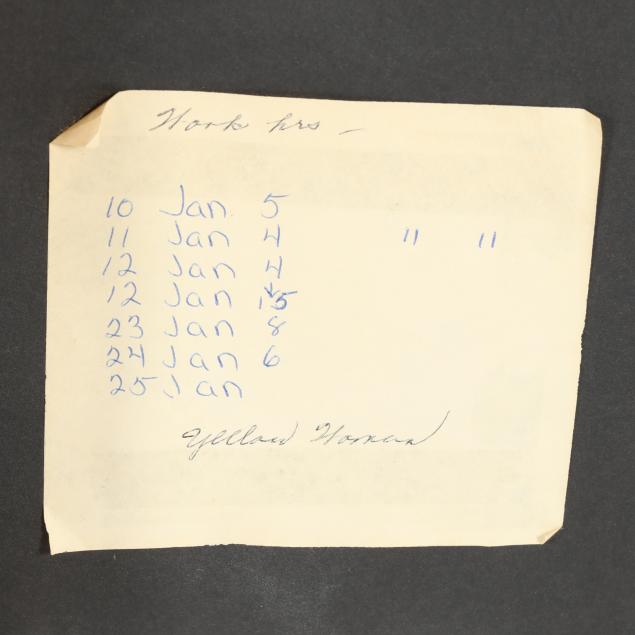 Work hrs –
10 Jan 5
11 Jan 4 " "
12 Jan 4
12 Jan
23 Jan 8
24 Jan 6
25 Jan
Yellow Woman